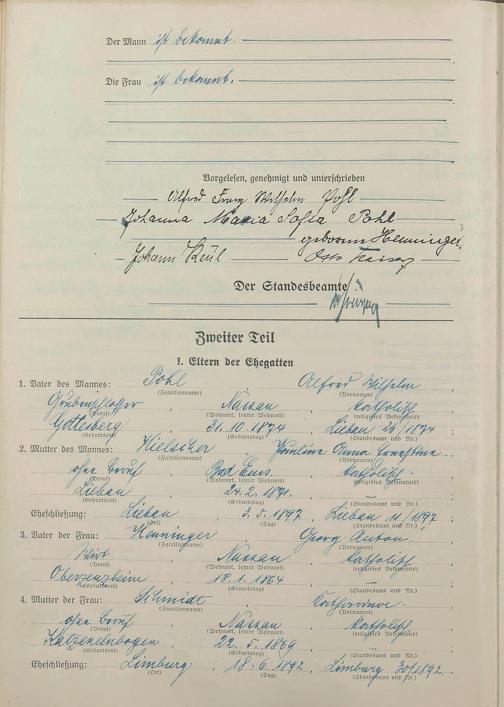 Der Mann ist bekannt.
Die Frau ist bekannt.
Vorgelesen, genehmigt und unterschrieben
Alfred Franz Wilhelm Pohl
Johanna Maria Sofia Pohl
geborene Henninger
Johann Keul Otto
Der Standesbeamte
Zweiter Teil
I. Eltern der Ehegatten
1. Vater des Mannes: Pohl, Alfred Wilhelm,
(Familienname) (Vornamen)
Grubenschlosser, Nassau, katholisch
(Beruf) (Wohnort, letzter Wohnort) (religiöses Bekenntnis)
Gottesberg, 31.10.1874, Liebau 26/1874
(Geburtsort) (Geburtstag) (Standesamt und Nr.)
2. Mutter des Mannes: Hielscher, Pauline Anna Ernestine,
(Familienname) (Vornamen)
ohne Beruf, Bad Ems, katholisch
(Beruf) (Wohnort, letzter Wohnort) (religiöses Bekenntnis)
Liebau, 24.2.1871.
(Geburtsort) (Geburtstag) (Standesamt und Nr.)
Eheschließung: Liebau, 3.5.1897, Liebau 11/1897;
(Ort) (Tag) (Standesamt und Nr.)
3. Vater der Frau: Henninger, Georg Anton,
(Familienname) (Vornamen)
Wirt, Nassau, katholisch
(Beruf) (Wohnort, letzter Wohnort) (religiöses Bekenntnis)
Oberzeuzheim, 18.1.1864
(Geburtsort) (Geburtstag) (Standesamt und Nr.)
4. Mutter der Frau: Schmidt, Katharina
(Familienname) (Vornamen)
ohne Beruf, Nassau, katholisch
(Beruf) (Wohnort, letzter Wohnort) (religiöses Bekenntnis)
Katzenelnbogen, 22.5.1869
(Geburtsort) (Geburtstag) (Standesamt und Nr.)
Eheschließung: Limburg, 18.6.1892, Limburg 30/1892.
(Ort) (Tag) (Standesamt und Nr.)